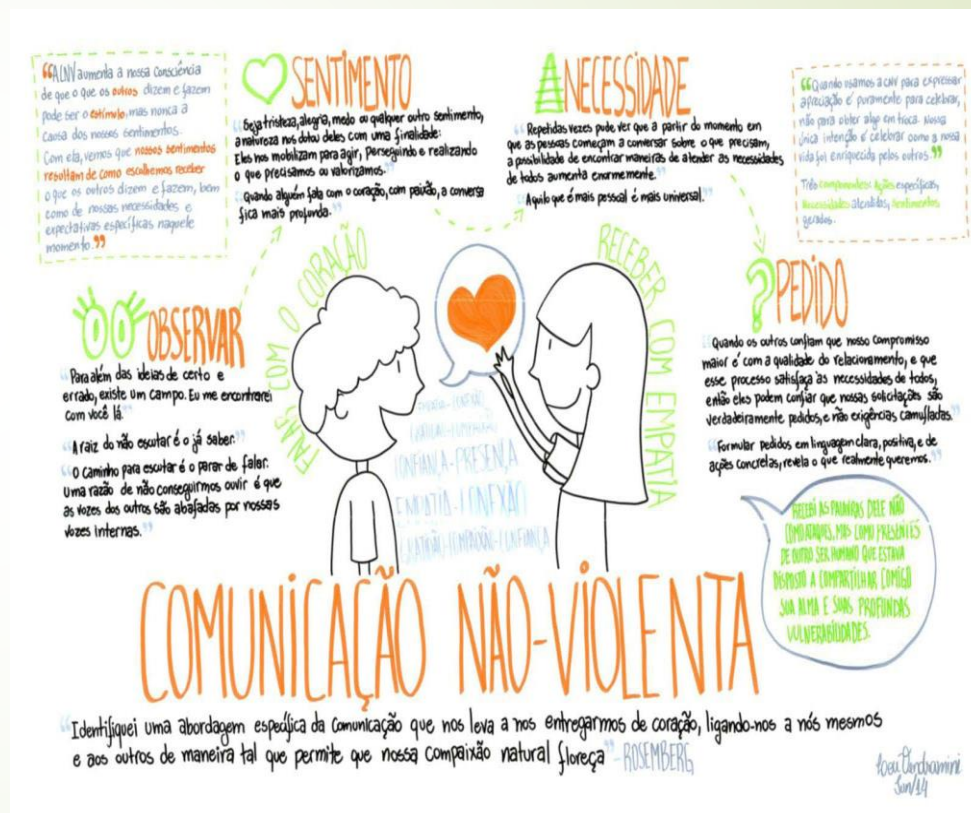 “A CNV aumenta a nossa Consciência
de que o que os outros dizem e fazem
pode ser o estímulo, mas nunca a
causa dos nossos sentimentos.
Com ela, vemos que nossos sentimentos
resultam de como escolhemos receber
o que os outros dizem e fazem, bem
como de nossas necessidades e
expectativas específicas naquele
momento.”
SENTIMENTO
“Seja tristeza, alegria, medo ou qualquer outro sentimento,
a natureza nos dotou deles com uma finalidade:
Eles nos mobilizam para agir, perseguindo e realizando
o que precisamos ou valorizamos.”
“Quando alguém fala com o coração, com paixão, a conversa
fica mais profunda.”
NECESSIDADE
“Repetidas vezes pude ver que a partir do momento em
que as pessoas começam a conversar sobre o que precisam,
a possibilidade de encontrar maneiras de atender as necessidades
de todos aumenta enormemente.”
“Aquilo que é mais pessoal é mais universal.”
“Quando usamos a CNV para expressar
apreciação é puramente para celebrar,
não para obter algo em troca. Nossa
única intenção é celebrar como a nossa
vida foi enriquecida pelos outros.”
Três componentes: Ações específicas,
Necessidades atendidas, Sentimentos
gerados.
OBSERVAR
“Para além das ideias de certo e
errado, existe um campo. Eu me encontrarei
com você lá.”
“A raiz do não escutar é o já saber.”
“O caminho para escutar é o parar de falar.
Uma razão de não conseguirmos ouvir é que
as vozes dos outros são abafadas por nossas
vozes internas.”
FALAR COM O CORAÇÃO
RECEBER COM EMPATIA
CONFIANÇA-PRESENÇA
EMPATIA-CONEXÃO
GRATIDÃO-COMPAIXÃO-CONFIANÇA
PEDIDO
“Quando os outros confiam que nosso compromisso
maior é com a qualidade do relacionamento, e que
esse processo satisfaça às necessidades de todos,
então eles podem confiar que nossas solicitações são
verdadeiramente pedidos, e não exigências camufladas.”
“Formular pedidos em linguagem clara, positiva, e de
ações concretas, revela o que realmente queremos.”
RECEBI AS PALAVRAS DELE NÃO
COMO ATAQUES, MAS COMO PRESENTES
DE OUTRO SER HUMANO QUE ESTAVA
DISPOSTO A COMPARTILHAR COMIGO
SUA ALMA E SUAS PROFUNDAS
VULNERABILIDADES.
COMUNICAÇÃO NÃO-VIOLENTA
“Identifiquei uma abordagem específica da comunicação que nos leva a nos entregarmos de coração, ligando-nos a nós mesmos
e aos outros de maneira tal que permite que nossa compaixão natural floreça” - ROSEMBERG
Jan/14